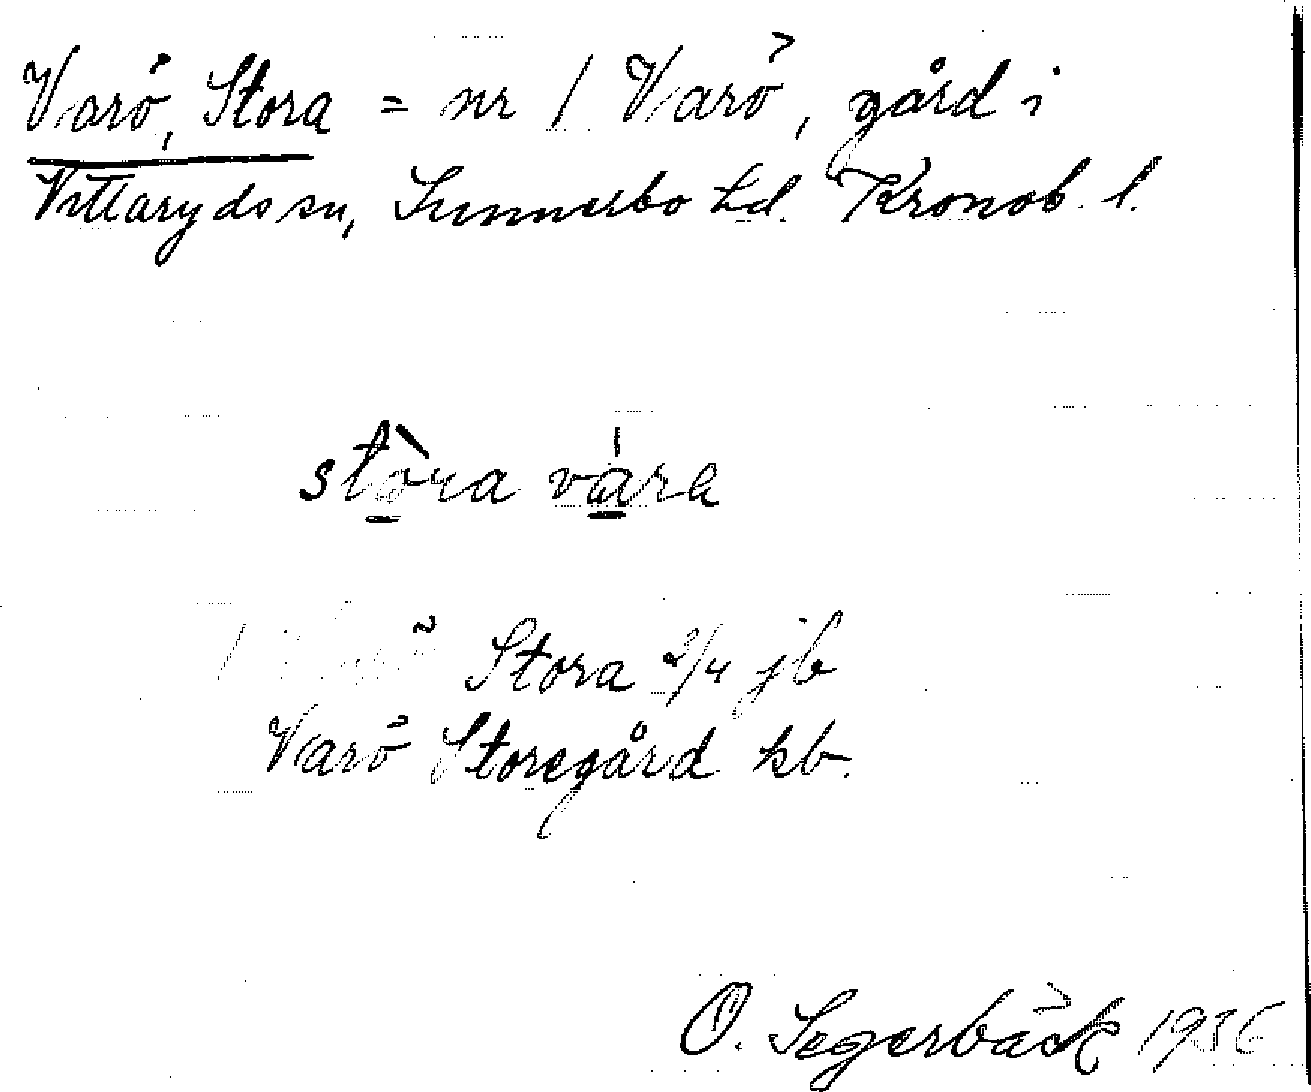 Varö, Stora = nr 1 Varö, gård i
Vittaryds sn, Sunnerbo hd. Kronob. l.
stòra vára
1 Varö Stora 3/4 jb
Varö Storegård kb.
O. Segerbäck 1936